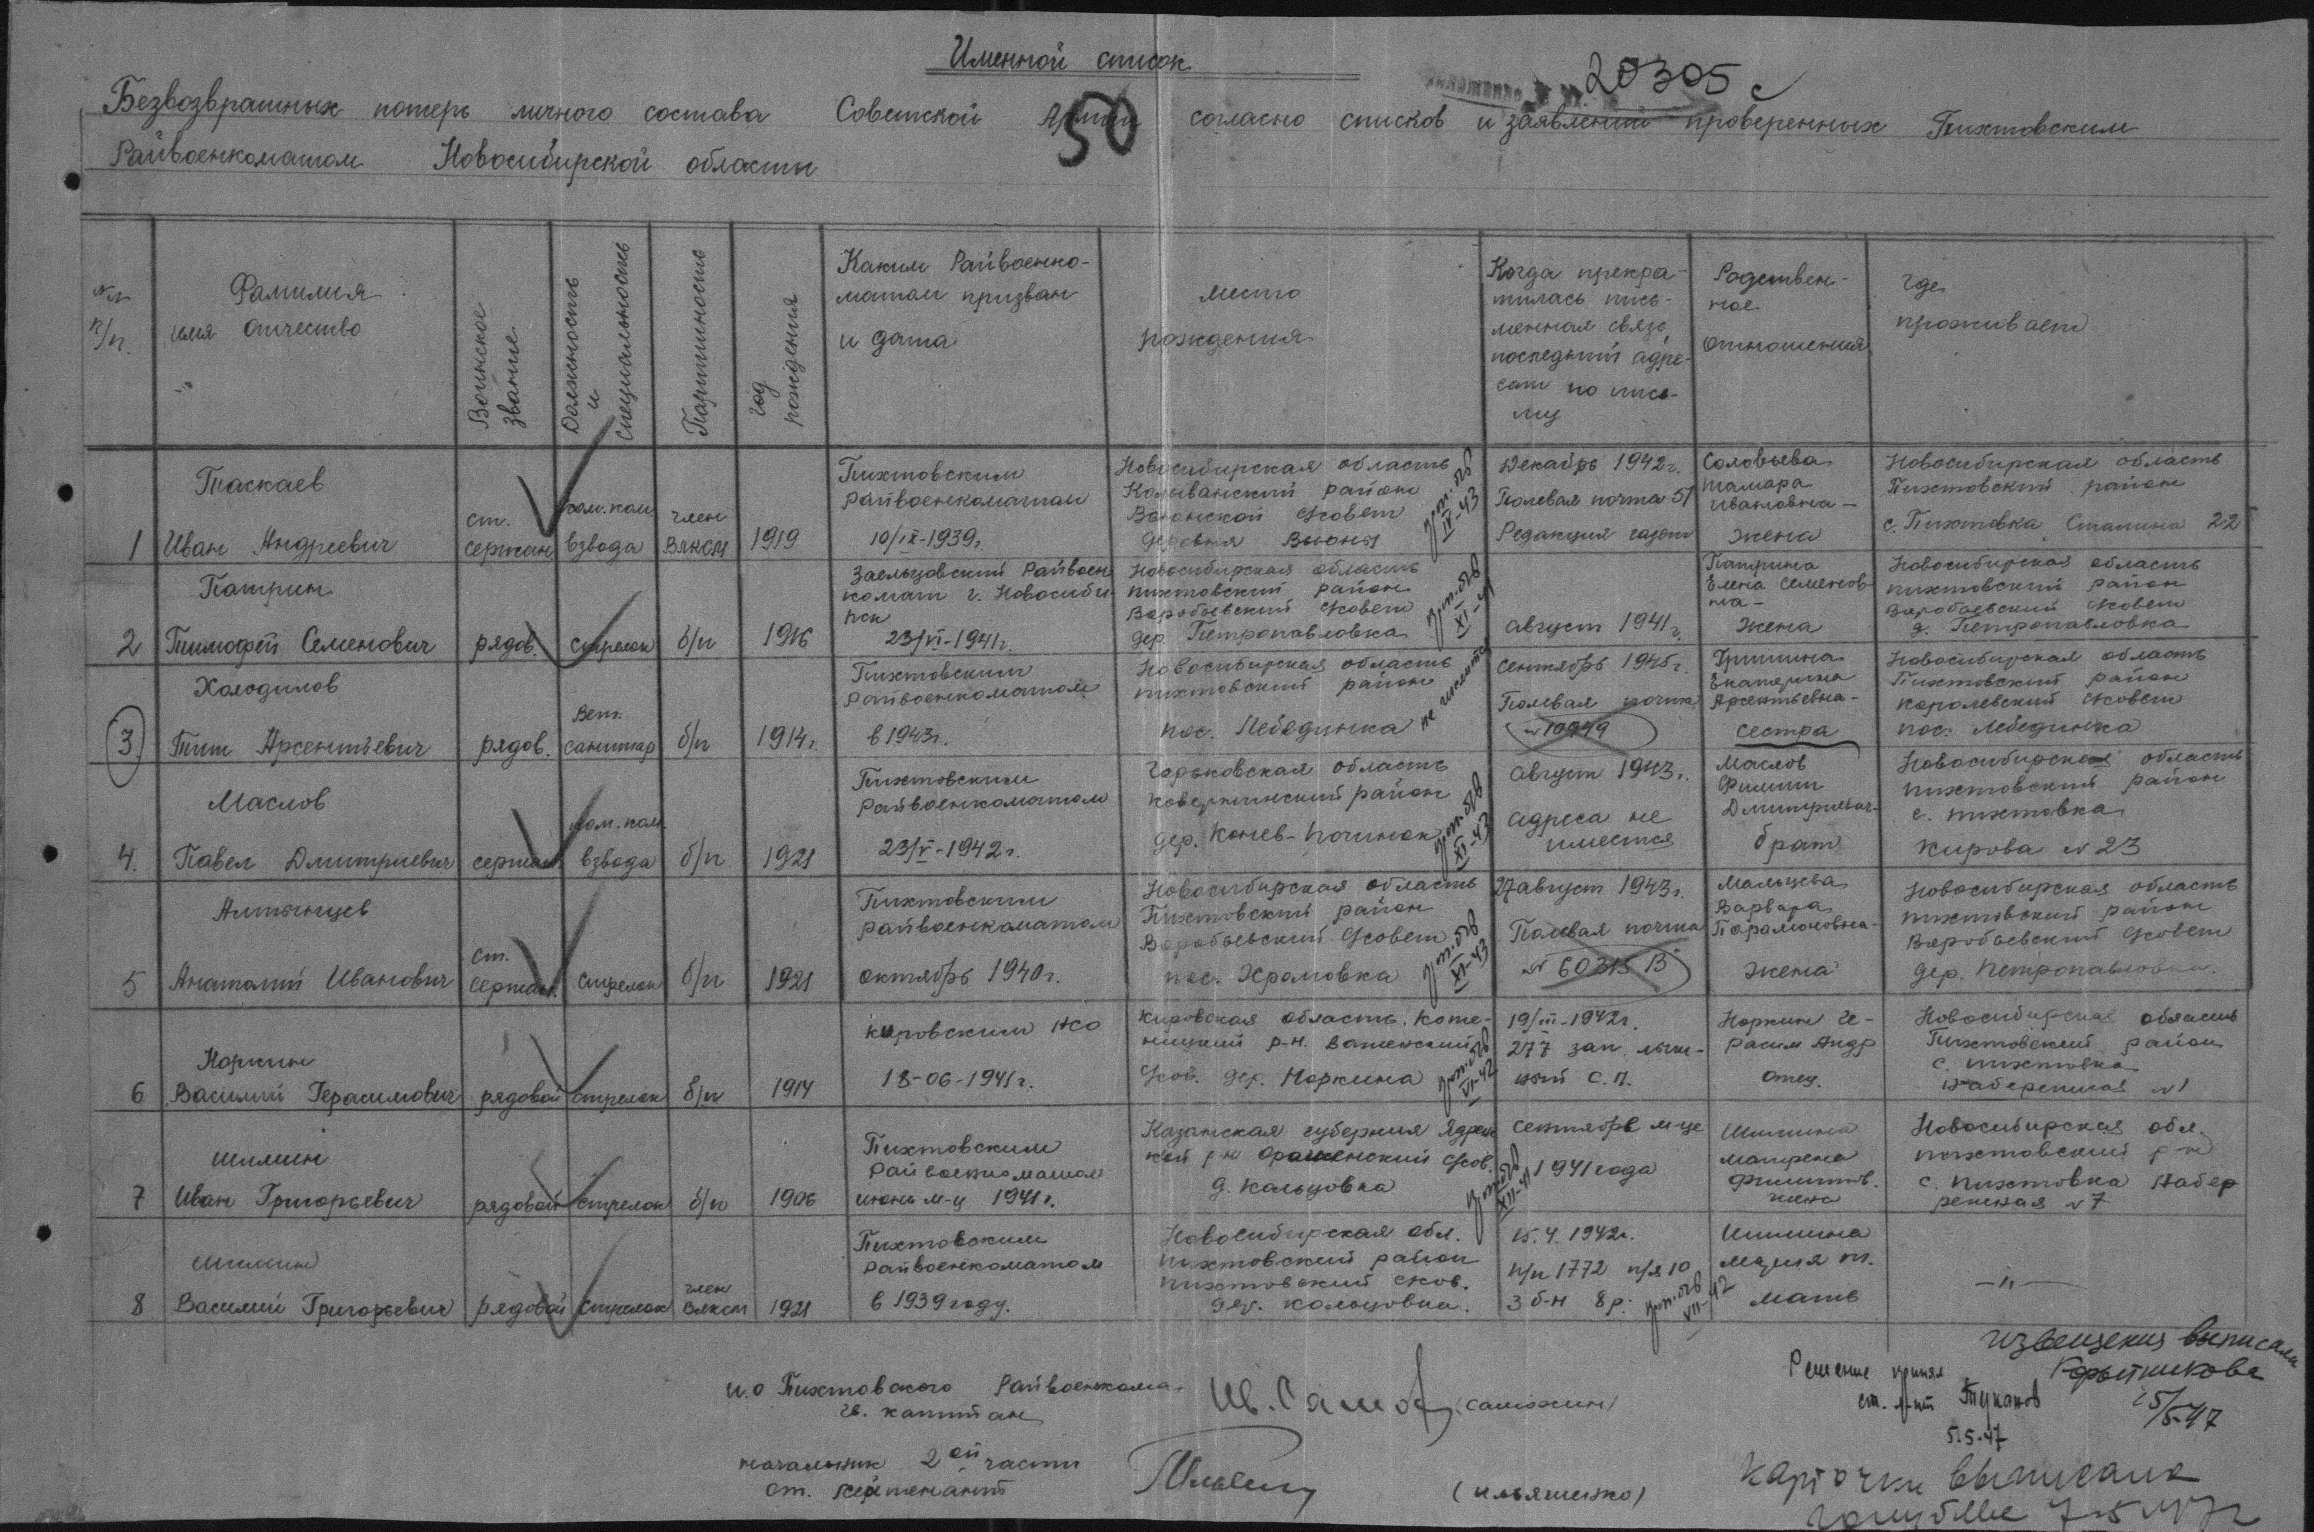 Именной список
20305 с
50
Безвозвратных потерь личного состава Советской Армии согласно списков и заявлений проверенных Пихтовским
Райвоенкоматом Новосибирской области
№№ п/п.
Фамилия имя отчество
Воинское звание
Должность и специальность
Партийность
год рождения
Каким Райвоенкоматом призван и дата
место рождения
Когда прекратилась письменная связь последний адрес по письму
Родственное отношения
где проживает
1
Таскаев
Иван Андреевич
ст. сержан
пом. ком взвода
член ВЛКСМ
1919
Пихтовским
райвоенкоматом
10/IX-1939г.
Новосибирская область
Колыванский район
Вьюнской с/совет
деревня Вьюны
IV-43
Декабрь 1942г.
Полевая почта 51
Редакция газеты
Соловьева
Тамара
Ивановна –
жена
Новосибирская область
Пихтовский район
с. Пихтовка Сталина 22
2
Патрин
Тимофей Семенович
рядов.
стрелок
б/п
1916
Заельцовский Райвоен
комат г. Новосиби
рск
23/VI-1941г.
Новосибирская область
пихтовский район
Воробьевский с/совет
дер. Петропавловка
XI-41
август 1941г.
Патрина
Елена Семенов
на –
жена
Новосибирская область
пихтовский район
Воробьевский с/совет
д. Петропавловка
3
Холодилов
Тит Арсентьевич
рядов.
Вет. санитар
б/п
1914г.
Пихтовским
райвоенкоматом
в 1943г.
Новосибирская область
пихтовский район
пос. Лебединка
не числится
сентябрь 1945г.
Полевая почта
№ 10949
Гришина
Екатерина
Арсентьевна –
сестра
Новосибирская область
Пихтовский район
королевский с/совет
пос. Лебединка
4.
Маслов
Павел Дмитриевич
сержан
пом. ком взвода
б/п
1921
Пихтовским
райвоенкоматом
23/V-1942г.
Горьковская область
ковернинский район
дер. Конев-Починок
XI-43
август 1943г.
адреса не
имеется
Маслов
Филипп
Дмитриевич –
брат
Новосибирская область
пихтовский район
с. пихтовка
кирова № 23
5
Алтынцев
Анатолий Иванович
ст. сержан.
стрелок
б/п
1921
Пихтовским
райвоенкоматом
октябрь 1940г.
Новосибирская область
Пихтовский район
Воробьевский с/совет
пос. Хромовка
XI-43
27 август 1943г.
Полевая почта
№ 60315 В
Мальцева
Варвара
Парамоновна –
жена
Новосибирская область
пихтовский район
Воробьевский с/совет
дер. Петропавловка.
6
Норкин
Василий Герасимович
рядовой
стрелок
б/п
1914
кировским НСО
18-06-1941г.
Кировская область. Коте-
ницкий р-н.
с/сов. дер. Норкина
VI-42
19/III-1942г.
277 зап. лыж-
ный с.п.
Норкин Ге-
расим Андр
отец.
Новосибирская область
Пихтовский район
с. пихтовка
Набережная №1
7
шишин
Иван Григорьевич
рядовой
стрелок
б/п
1906
Пихтовским
райвоенкоматом
июнь м-ц 1941г.
Казанская губерния Ядрен
кий р-н с/сов.
д. кольцовка
XII-41
сентябрь м-це
1941 года
Шишина
матрена
филипов.
жена
Новосибирская обл.
пихтовский р-н
с. пихтовка Набер
режная №7
8
шишин
Василий Григорьевич
рядовой
стрелок
член ВЛКСМ
1921
Пихтовским
райвоенкоматом
в 1939 году.
Новосибирская обл.
пихтовский район
пихтовский с/сов.
дер. кольцовка.
15.4.1942г.
п/п 1772 п/я 10
3 б-н 8 р.
VII-42
Шишина
Мария
мать
—"—
и.о Пихтовского Райвоенкома-
гв. капитан
(самохин)
начальник 2ой части
ст. лейтенант
(ильяшенко)
Решение принял
ст. л-нт Туканов
5.5.47
извещения выписала
5/5-47
карточки выписала
7-5-47г